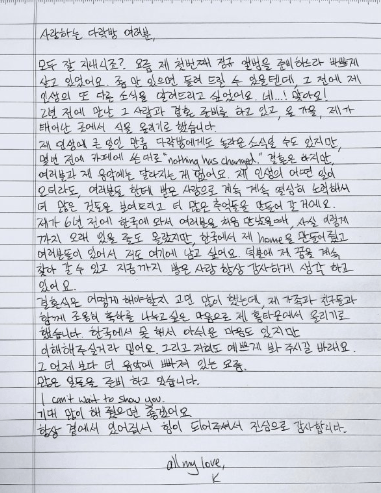 사랑하는 다락방 여러분,
모두 잘 지내시죠? 요즘 제 첫번째 정규 앨범을 준비하느라 바쁘게
살고 있었어요. 좀 만 있으면 들려 드릴 수 있을텐데, 그 전에 제
인생의 또 다른 소식을 알려드리고 싶었어요. 네...! 맞아요!
2년 전에 만난 그 사람과 결혼 준비를 하고 있고, 올 가을, 제가
태어난 곳에서 식을 올리기로 했습니다.
제 인생에 큰 일인 만큼 다락방에게도 놀라운 소식일 수도 있지만,
몇년 전에 카페에 쓴 대로 "nothing has changed." 결혼은 하지만,
여러분과 제 음악에는 달라지는 게 없어요. 제 인생의 어떤 일이
오더라도, 여러분들 한테 받은 사랑으로 계속 계속 열심히 노력해서
더 많은 것들을 보여드리고 더 많은 추억들을 만들어 갈 거예요.
제가 6년 전에 한국에 와서 여러분을 처음 만났을 때, 사실 이렇게
까지 오래 있을 줄도 몰랐지만, 한국에서 제 home을 만들어줬고
여러분들이 있어서 저도 여기에 남고 싶어요. 덕분에 제 꿈을 계속
찾아 갈 수 있고 지금까지 받은 사랑 항상 감사하게 생각 하고
있어요.
결혼식은 어떻게 해야할지 고민 많이 했는데, 제 가족과 친구들과
함께 조용히 축하를 나누고 싶은 마음으로 제 홈타운에서 올리기로
했습니다. 한국에서 못 해서 아쉬운 마음도 있지만
이해해주실거라 믿어요. 그리고 저희도 예쁘게 봐 주시길 바래요.
그 언제 보다 더 음악에 빠져 있는 요즘.
많은 일들을 준비 하고 있습니다.
I can't wait to show you.
기대 많이 해 줬으면 좋겠어요
항상 곁에서 있어줘서 힘이 되어주셔서 진심으로 감사합니다.
all my love,
K